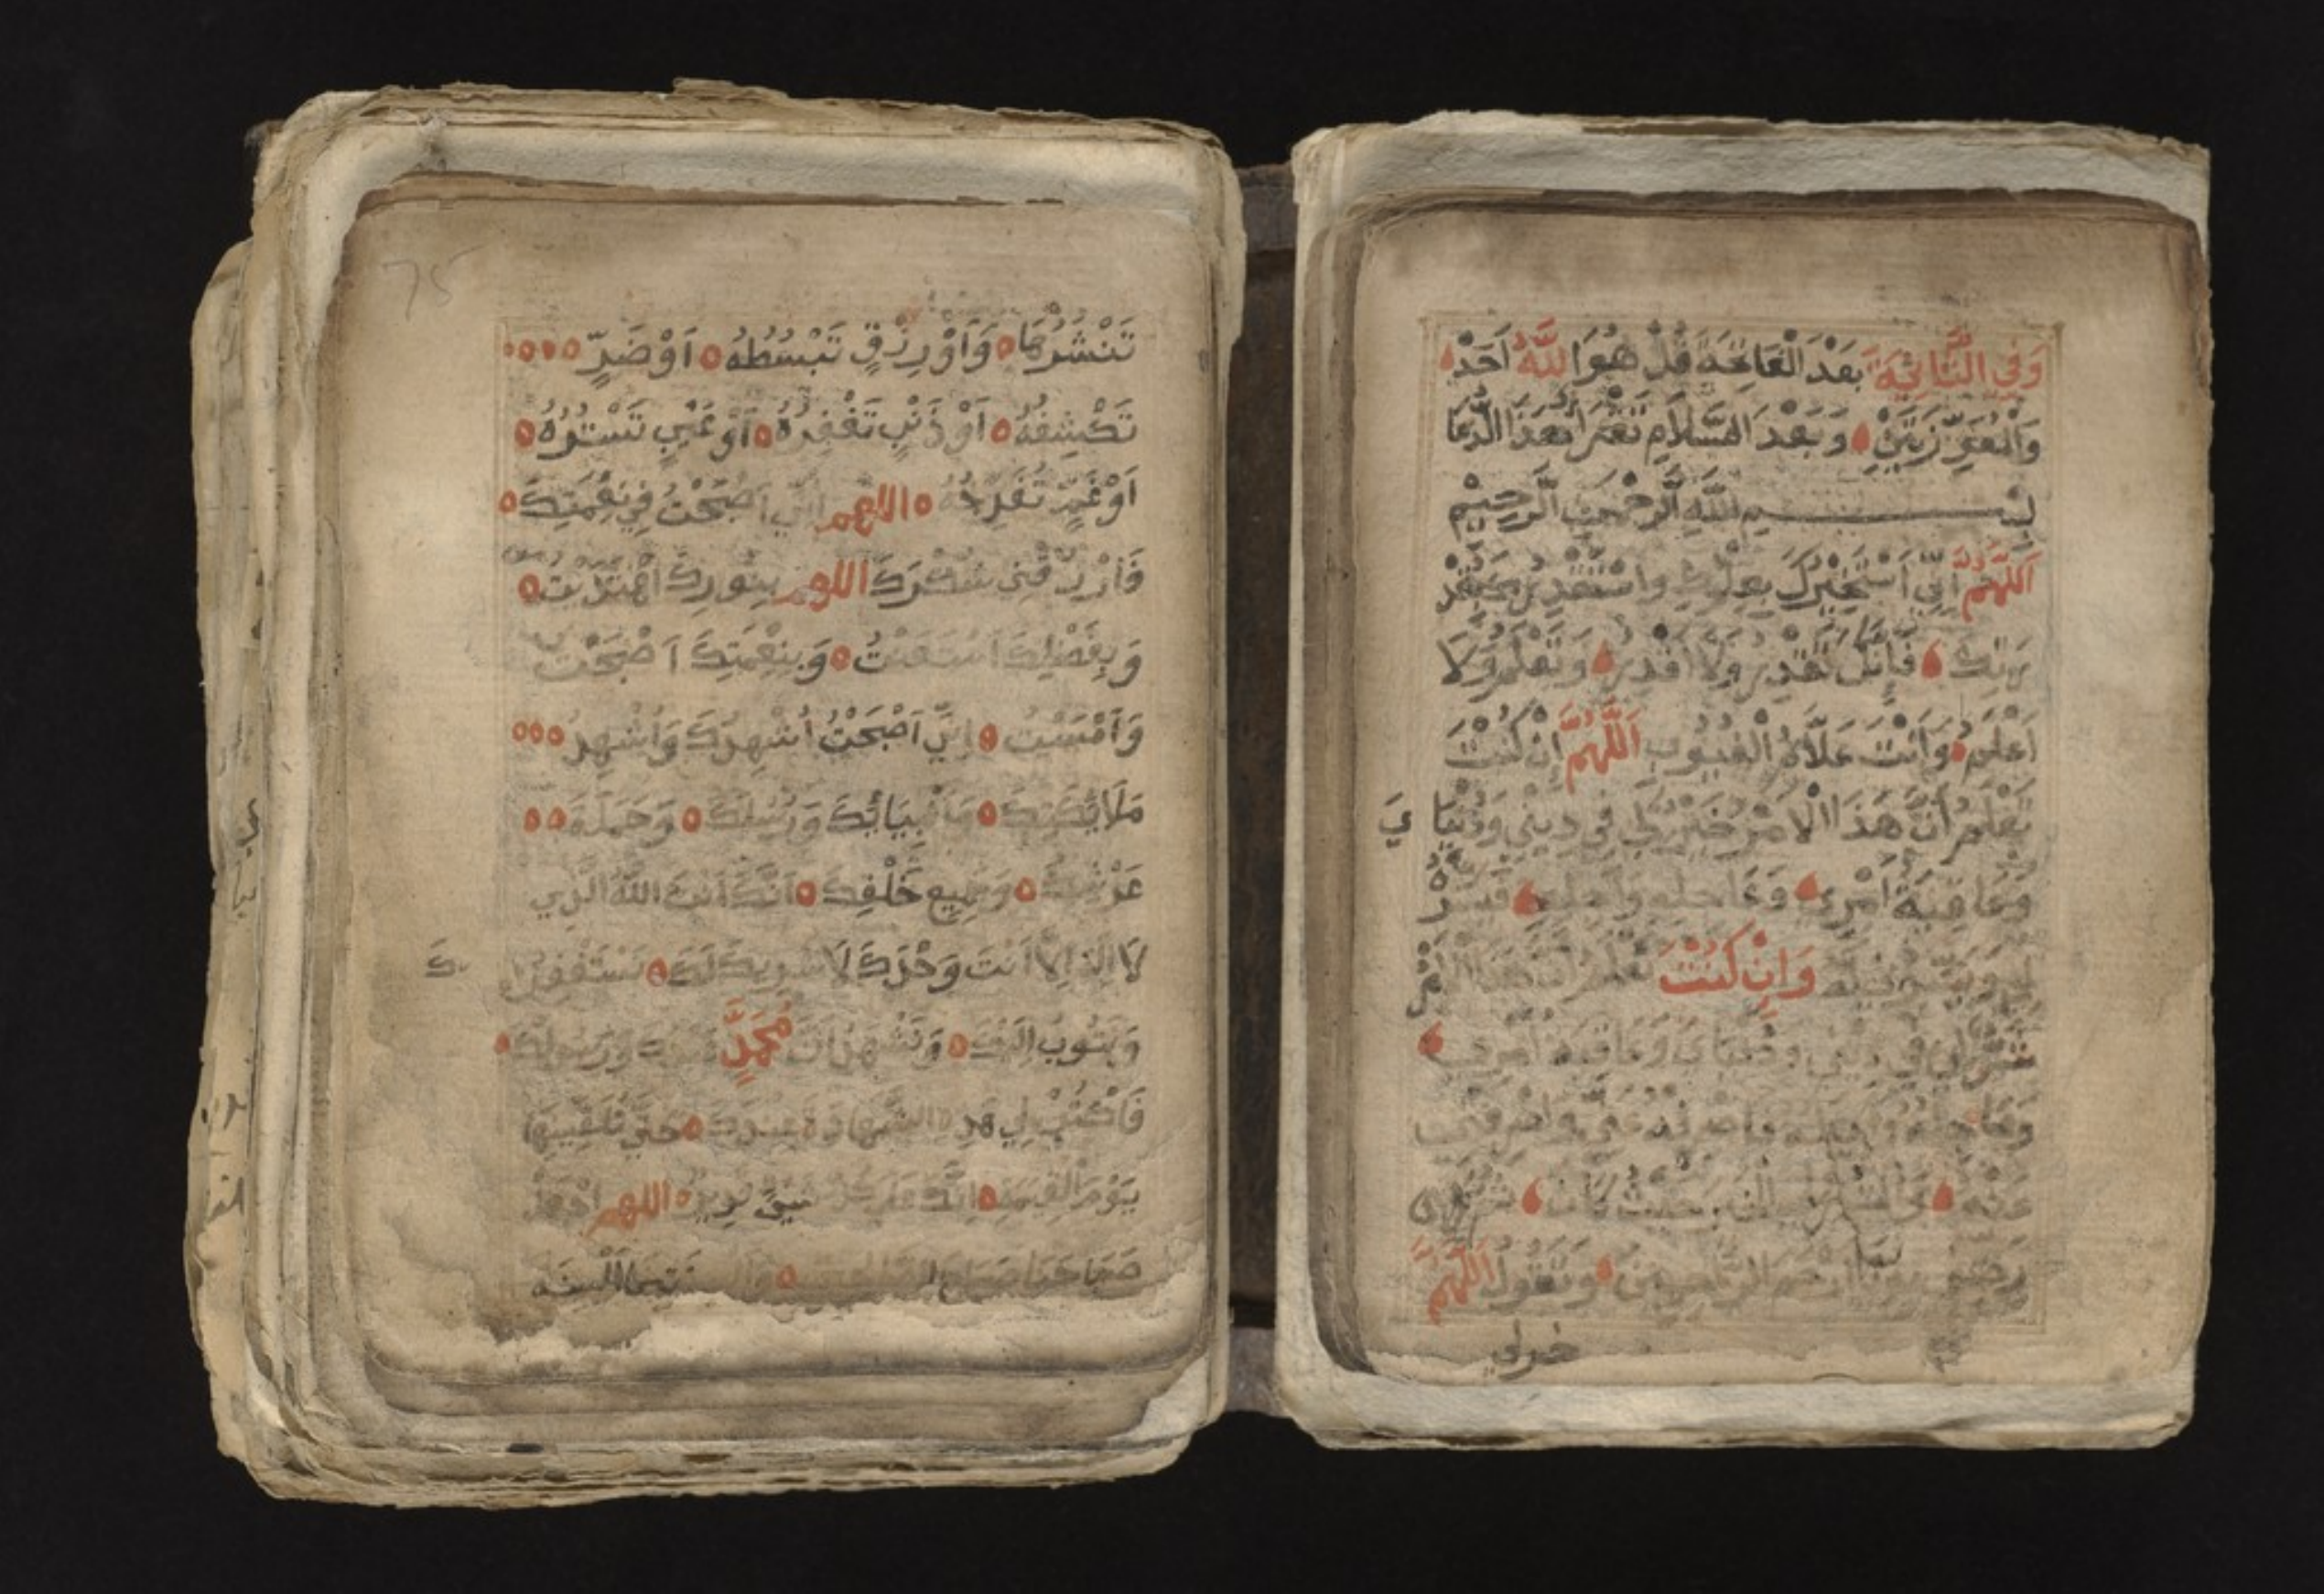 وَفِي الثَّانِيَةِ بَعْدَ الْفَاتِحَةِ قُلْ هُوَ اللَّهُ اَحَدْ
وَالْمُعَوِّذَتَيْنِ وَبَعْدَ السَّلَامِ تَقْرَا هَذَا الدُّعَا
بِسْمِ اللَّهِ الرَّحْمَنِ الرَّحِيمِ
اَللَّهُمَّ اِنِّي اَسْتَخِيْرُكَ بِعِلْمِكَ وَاسْتَقْدِرُكَ بِقُدْ
رَتِكَ فَاِنَّكَ تَقْدِرُ وَلَا اَقْدِرُ وَتَعْلَمُ وَلَا
اَعْلَمُ وَاَنْتَ عَلَّامُ الْغُيُوبِ اَللَّهُمَّ اِنْ كُنْتَ
تَعْلَمُ اَنَّ هَذَا الْاَمْرَ خَيْرٌ لِي فِي دِيْنِي وَدُنْيَا يَ
وَعَاقِبَةِ اَمْرِي وَعَاجِلِهِ وَاٰجِلِهِ فَيَسِّرْ
وَاِنْ كُنْتَ تَعْلَمُ اَنَّ هَذَا الْاَمْرَ
شَرٌّ لِي فِي دِيْنِي وَدُنْيَايَ وَعَاقِبَةِ اَمْرِي
وَعَاجِلِهِ وَاٰجِلِهِ فَاصْرِفْهُ عَنِّي وَاصْرِفْنِي
عَنْهُ حَيْثُ كَانَ
يَا اَرْحَمَ الرَّاحِمِيْنَ وَتَقُولُ اَللَّهُمَّ
خر لي
75
تَنْشُرُهَا وَاَوْ رِزْقٍ تَبْسُطُهُ اَوْ ضَرٍّ
تَكْشِفُهُ اَوْ ذَنْبٍ تَغْفِرُهُ اَوْ عَيْبٍ تَسْتُرُهُ
اَوْ غَمٍّ تُفَرِّجُهُ اللهم اِنِّي اَصْبَحْتُ فِي نِعْمَتِكَ
فَارْزُقْنِي شُكْرَكَ اللهم بِنُورِكَ اهْتَدَيْتُ
وَبِفَضْلِكَ اسْتَعَنْتُ وَبِنِعْمَتِكَ اَصْبَحْتُ
وَاَمْسَيْتُ اِنِّي اَصْبَحْتُ اُشْهِدُكَ وَاُشْهِدُ
مَلَائِكَتِكَ وَاَنْبِيَائِكَ وَرُسُلِكَ وَحَمَلَةَ
عَرْشِكَ وَجَمِيعِ خَلْقِكَ اَنَّكَ اَنْتَ اللَّهُ الَّذِي
لَا اِلٰهَ اِلَّا اَنْتَ وَحْدَكَ لَا شَرِيكَ لَكَ نَسْتَغْفِرُ كَ
وَنَتُوبُ اِلَيْكَ وَنَشْهَدُ اَنَّ مُحَمَّدٍ عَبْدُكَ وَرَسُولُكَ
فَاكْتُبْ لِي هَذِهِ الشَّهَادَةَ عِنْدَكَ حَتَّى تُلَقِّيْنِيهَا
يَوْمَ الْقِيٰمَةِ اِنَّكَ عَلَى كُلِّ شَيْءٍ قَدِيرٌ اللهم اجْعَلْ
صَبَاحَنَا صَبَاحَ